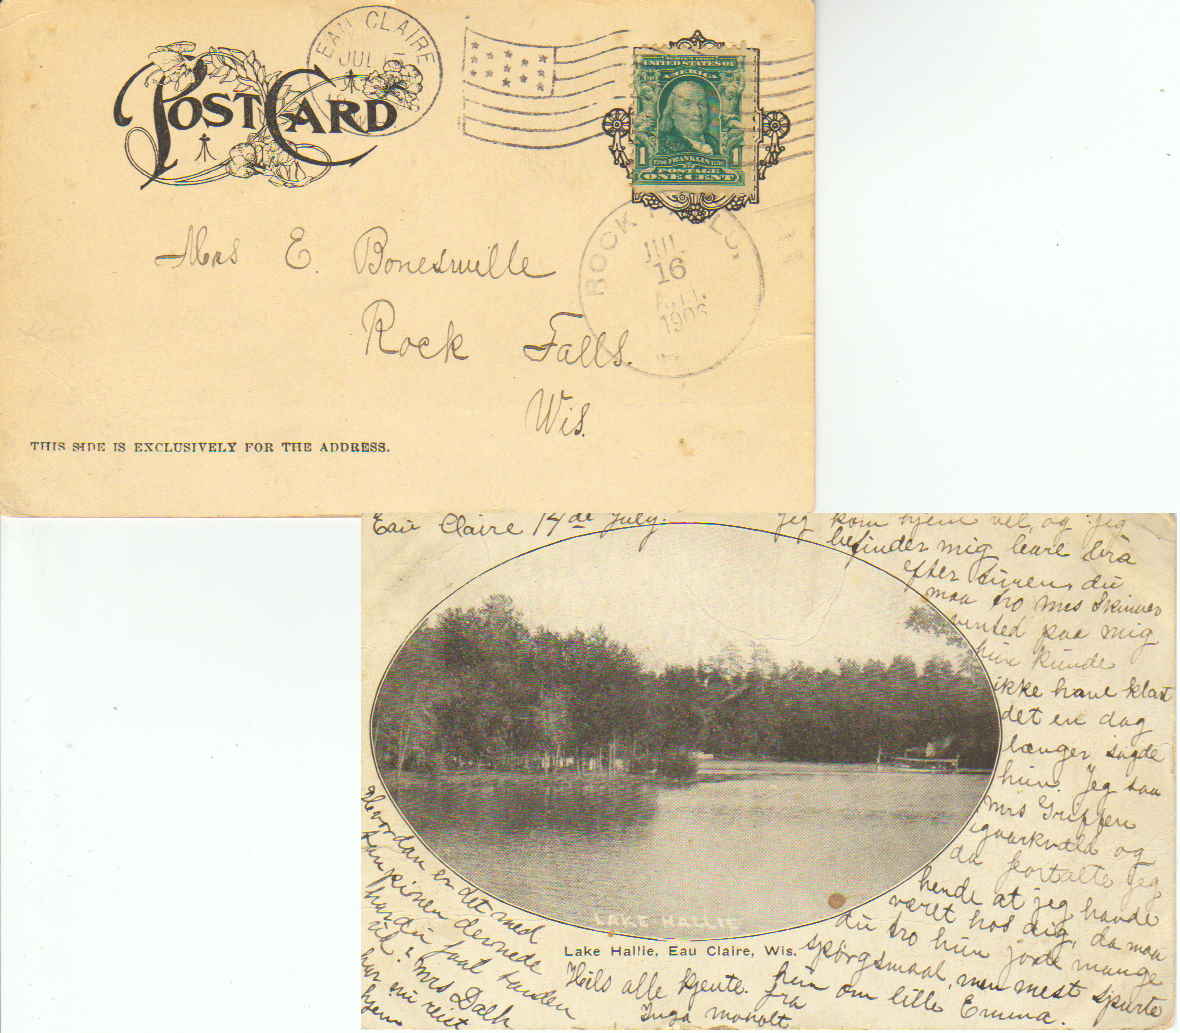 EAU CLAIRE
JUL
POST CARD
UNITED STATES OF
AMERICA
1 FRANKLIN 1
POSTAGE
ONE CENT
Mrs E. Bonesville
Rock Falls.
Wis.
ROCK
JUL
16
1906
THIS SIDE IS EXCLUSIVELY FOR THE ADDRESS.
Eau Claire 14de July.
Jeg kom hjem vel, og jeg
befinder mig bare bra
efter turen, du
maa tro Mrs Skinner
vented paa mig
hun kunde
ikke have klart
det en dag
længer sagde
hun. Jeg saa
Mrs Grippen
igaarkveld og
da fortalte jeg
hende at jeg havde
været hos dig, da maa
du tro hun jorde mange
spörgsmaal, men mest spurte
hun om lille Emma.
Hvordan er det med
kampionen dernede
har du faat tanden
ut? Mrs Dalh
har nu reist
hjem
Hils alle kjente. fra
Inga
LAKE HALLIE
Lake Hallie, Eau Claire, Wis.